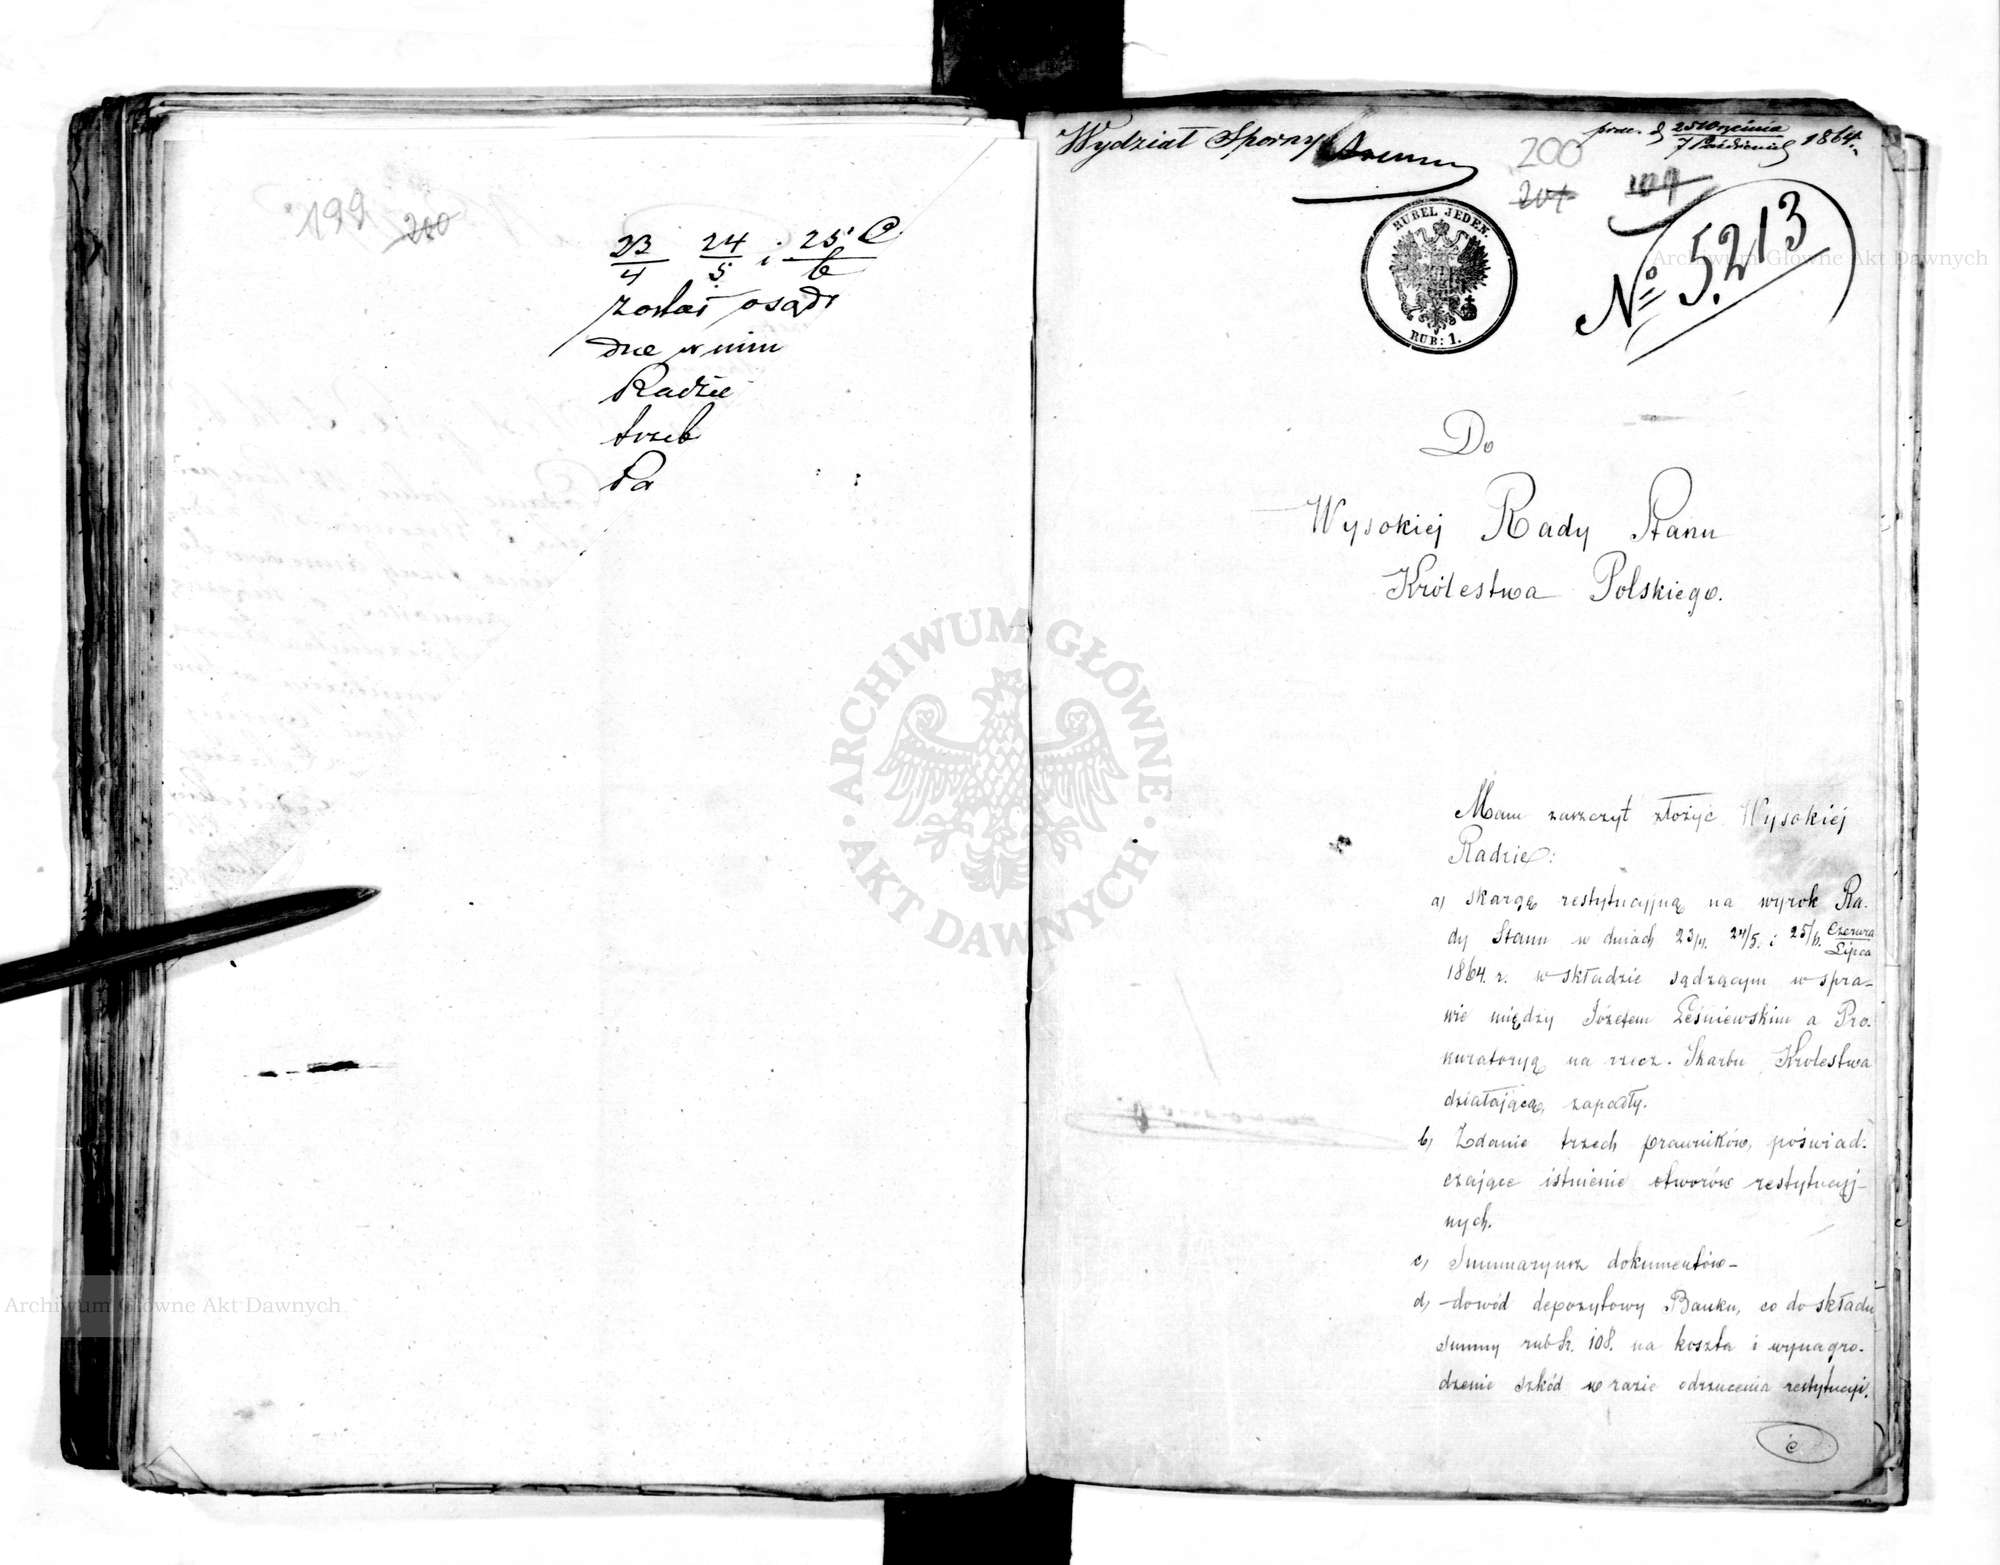 199
200
23/4 24/5 i 25/6 C
został osądz
dne w nim
Radzie
trzeb
Pa
Wydział Sporny
prez. d 25 Września / 7 Październik 1864.
200
201
109
RUBEL JEDEN.
RUB: 1.
No 5213
Do
Wysokiej Rady Stanu
Królestwa Polskiego.
Mam zaszczyt złożyć Wysokiej
Radzie:
a) skargę restytucyjną na wyrok Ra-
dy Stanu w dniach 23/4. 24/5. i 25/6. Czerwca/Lipca
1864. r. w składzie sądzącym w spra-
wie między Józefem Leśniewskim a Pro-
kuratoryą na rzecz Skarbu Krolestwa
działającą, zapadły.
b) Zdanie trzech prawników, poświad-
czające istnienie otworów restytucyj-
nych.
c) Summaryusz dokumentów-
d) dowód depozytowy Banku, co do składu
summy rub sr. 108. na koszta i wynagro-
dzenie szkód w razie odrzucenia restytucyi.
ARCHIWUM GŁÓWNE AKT DAWNYCH
Archiwum Główne Akt Dawnych
Archiwum Główne Akt Dawnych